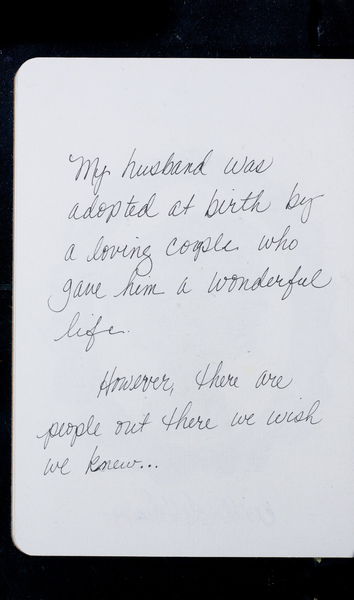 My husband was
adopted at birth by
a loving couple who
gave him a wonderful
life.
However, there are
people out there we wish
we knew...